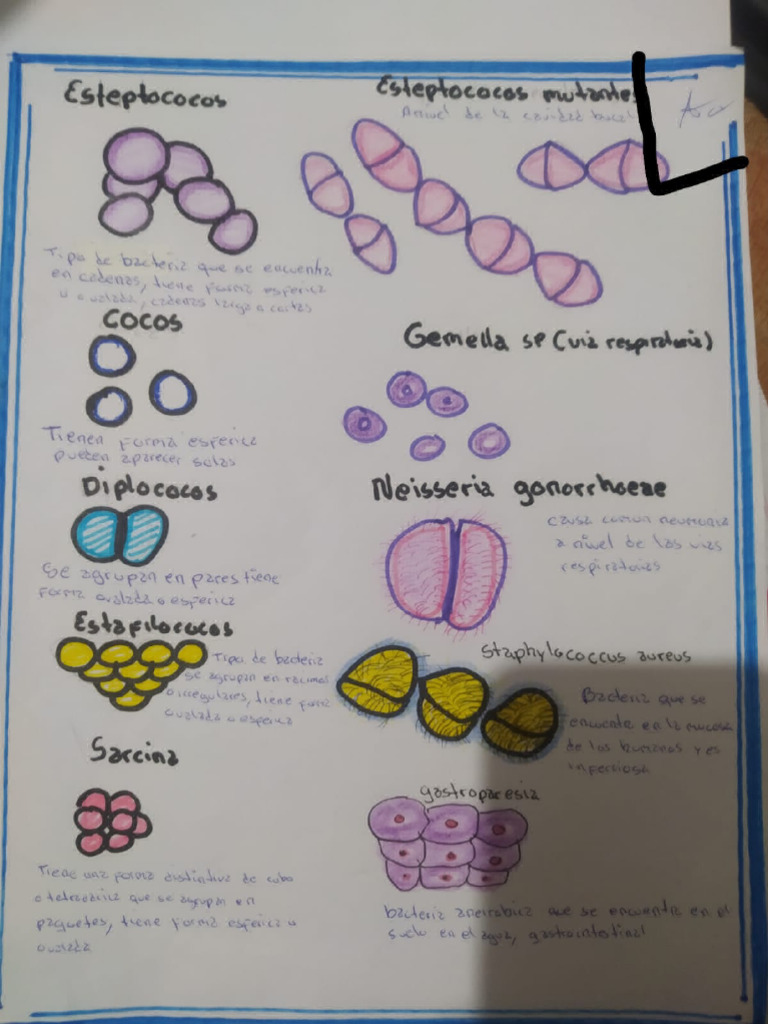 Esteptococos
Tipo de bacteria que se encuentra
en cadenas, tiene forma esferica
u ovalada, cadenas larga o cortas
Cocos
Tienen forma esferica
pueden aparecer solas
Diplococos
Se agrupan en pares tiene
forma ovalada o esferica
Estafilococos
Tipo de bacteria
se agrupan en racimos
o irregulares, tiene forma
ovalada o esferica
Sarcina
Tiene una forma distintiva de cubo
o tetraedrica que se agrupan en
paquetes, tiene forma esferica u
ovalada
Esteptococos mutantes
Anivel de la cavidad bucal
Gemella sp (via respiratoria)
Neisseria gonorrhoeae
causa comun neumonia
a nivel de las vias
respiratorias
Staphylococcus aureus
Bacteria que se
encuente en la mucosa
de los humanos y es
gastroparesia
bacteria aneirobica que se encuentra en el
suelo en el agua, gastrointestinal